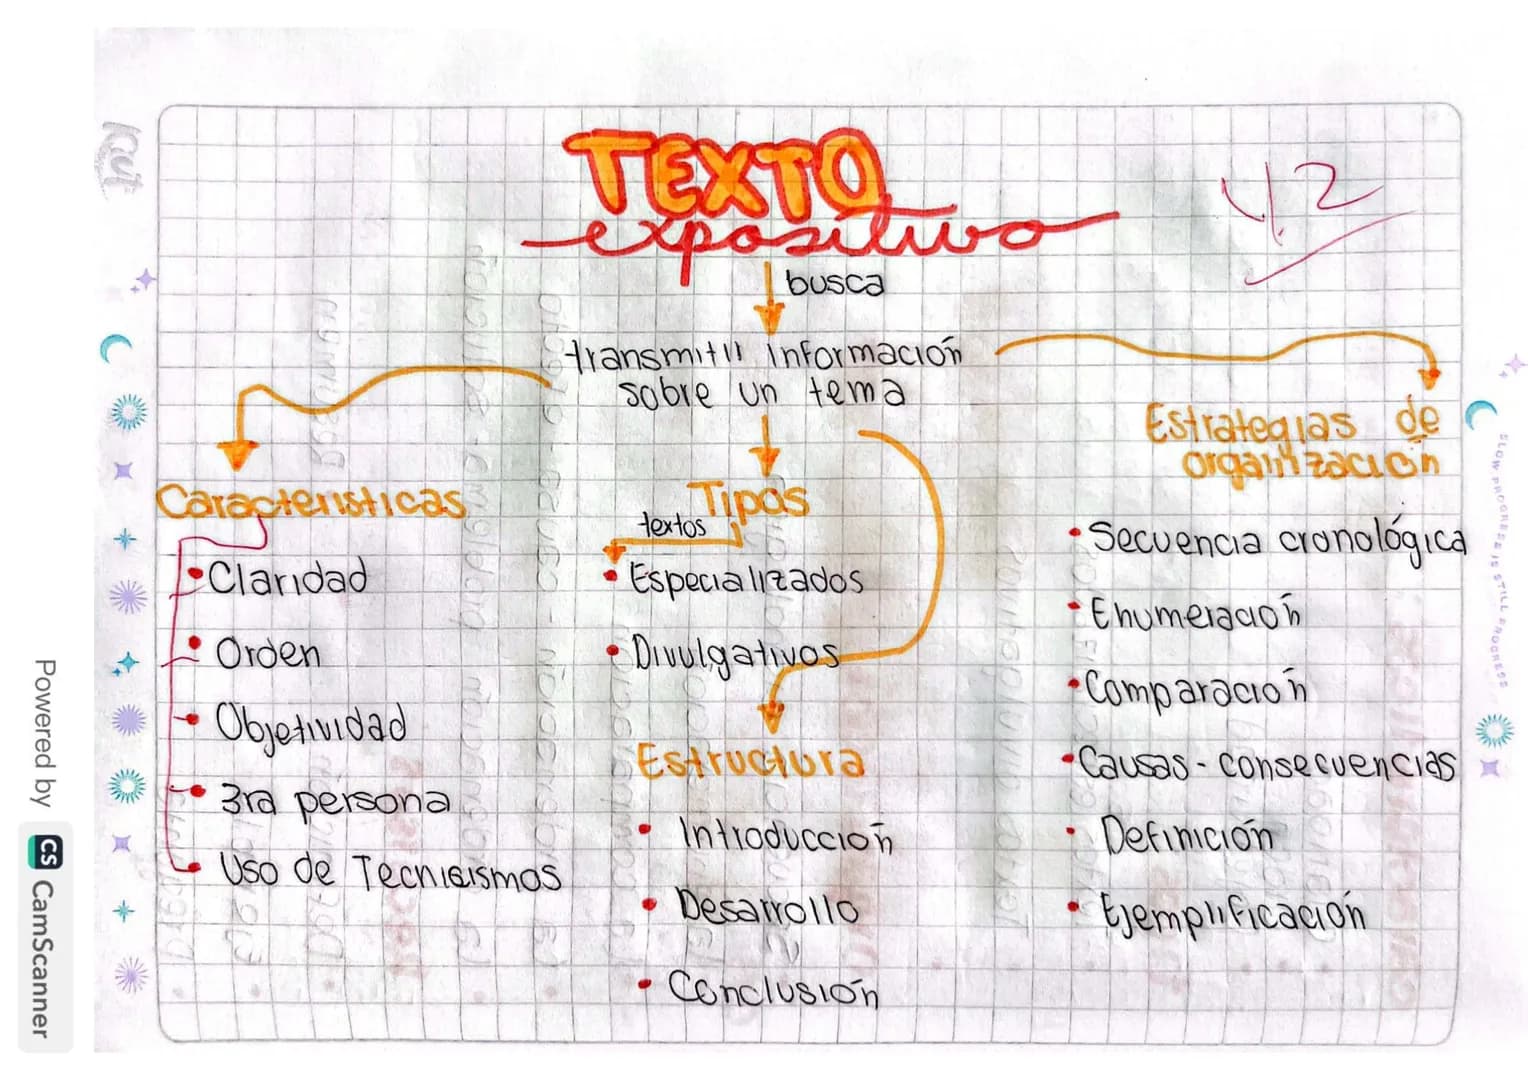 TEXTO
expositivo
busca
transmitir información
sobre un tema
Características
• Claridad
• Orden
• Objetividad
• 3ra persona
• Uso de Tecnicismos
Tipos
textos
• Especializados
• Divulgativos
Estructura
• Introducción
• Desarrollo
• Conclusión
Estrategias de
organización
• Secuencia cronológica
• Enumeración
• Comparación
• Causas - consecuencias
• Definición
• Ejemplificación
SLOW PROGRESS IS STILL PROGRESS
Powered by CS CamScanner